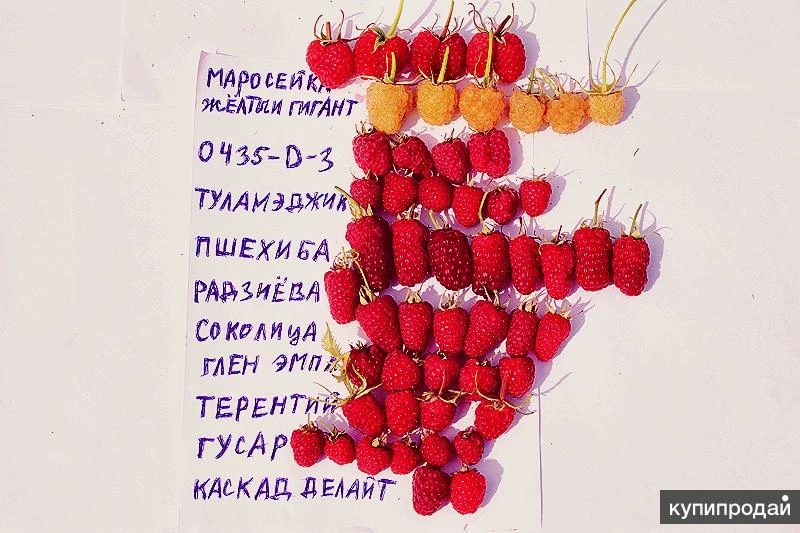 МАРОСЕЙКА
ЖЁЛТЫЙ ГИГАНТ
0435-D-3
ТУЛАМЭДЖИК
ПШЕХИБА
РАДЗИЁВА
СОКОЛИЦА
ГЛЕН
ТЕРЕНТИЙ
ГУСАР
КАСКАД ДЕЛАЙТ
купипродай